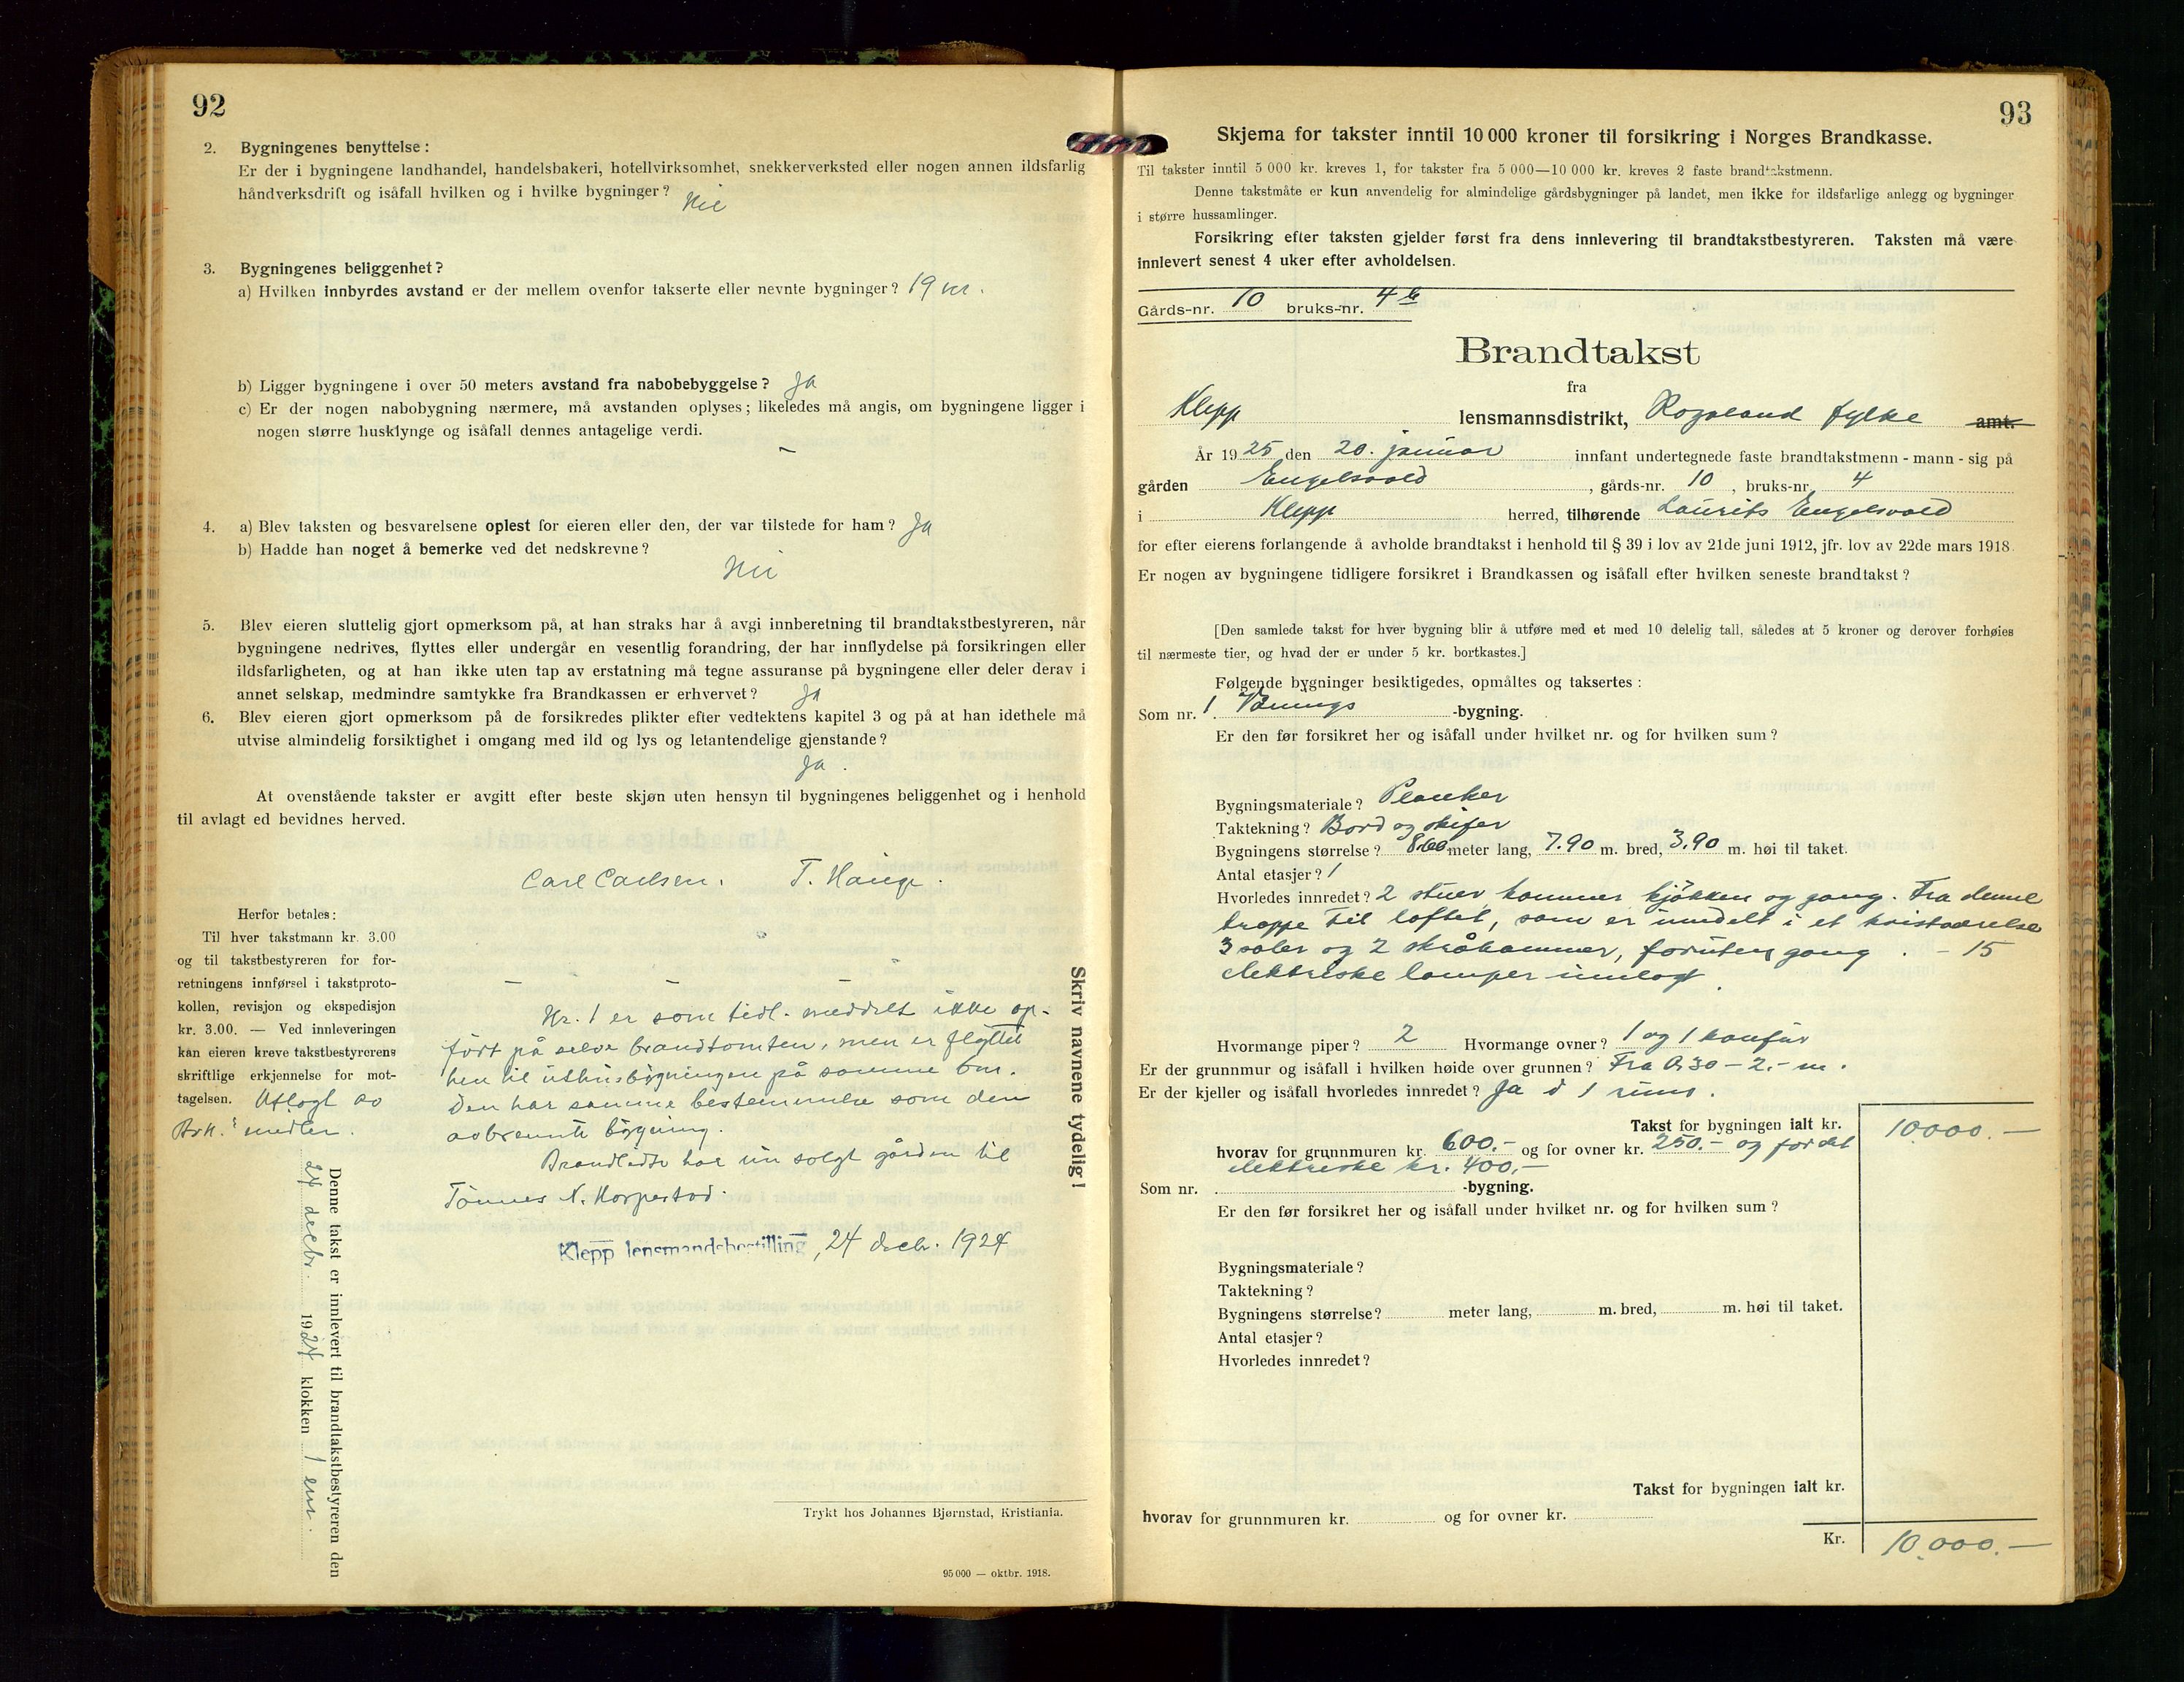 92
2. Bygningenes benyttelse:
Er der i bygningene landhandel, handelsbakeri, hotellvirksomhet, snekkerverksted eller nogen annen ildsfarlig
håndverksdrift og isåfall hvilken og i hvilke bygninger? Nei
3. Bygningenes beliggenhet?
a) Hvilken innbyrdes avstand er der mellem ovenfor takserte eller nevnte bygninger? 19 m.
b) Ligger bygningene i over 50 meters avstand fra nabobebyggelse? Ja
c) Er der nogen nabobygning nærmere, må avstanden oplyses; likeledes må angis, om bygningene ligger i
nogen større husklynge og isåfall dennes antagelige verdi.
–
4. a) Blev taksten og besvarelsene oplest for eieren eller den, der var tilstede for ham? Ja
b) Hadde han noget å bemerke ved det nedskrevne?
Nei
5. Blev eieren sluttelig gjort opmerksom på, at han straks har å avgi innberetning til brandtakstbestyreren, når
bygningene nedrives, flyttes eller undergår en vesentlig forandring, der har innflydelse på forsikringen eller
ildsfarligheten, og at han ikke uten tap av erstatning må tegne assuranse på bygningene eller deler derav i
annet selskap, medmindre samtykke fra Brandkassen er erhvervet? Ja
6. Blev eieren gjort opmerksom på de forsikredes plikter efter vedtektens kapitel 3 og på at han idethele må
utvise almindelig forsiktighet i omgang med ild og lys og letantendelige gjenstande?
Ja.
At ovenstående takster er avgitt efter beste skjøn uten hensyn til bygningenes beliggenhet og i henhold
til avlagt ed bevidnes herved.
Carl Carlsen. T. Hauge.
Herfor betales:
Til hver takstmann kr. 3.00
og til takstbestyreren for for-
retningens innførsel i takstproto-
kollen, revisjon og ekspedisjon
kr. 3.00. — Ved innleveringen
kan eieren kreve takstbestyrerens
skriftlige erkjennelse for mot-
tagelsen. Utlagt av
midler.
— — —
Nr. 1 er som tidl. meddelt ikke op-
ført på selve brandtomten, men er flyttet
hen til uthusbygningen på samme bnr.
Den har samme bestemmelse som den
avbrennte bygning.
Brandlidte har nu solgt gården til
Tønnes N. Horpestad.
Klepp lensmandsbestilling, 24 decbr. 1924
Skriv navnene tydelig!
Denne takst er innlevert til brandtakstbestyreren den
24 decbr. 1924 klokken 1 em.
Trykt hos Johannes Bjørnstad, Kristiania.
95 000 — oktbr. 1918.
93
Skjema for takster inntil 10 000 kroner til forsikring i Norges Brandkasse.
Til takster inntil 5 000 kr. kreves 1, for takster fra 5 000—10 000 kr. kreves 2 faste brandtakstmenn.
Denne takstmåte er kun anvendelig for almindelige gårdsbygninger på landet, men ikke for ildsfarlige anlegg og bygninger
i større hussamlinger.
Forsikring efter taksten gjelder først fra dens innlevering til brandtakstbestyreren. Taksten må være
innlevert senest 4 uker efter avholdelsen.
Gårds-nr. 10 bruks-nr. 4
Brandtakst
fra
Klepp lensmannsdistrikt, Rogaland fylke amt.
År 1925 den 20. januar innfant undertegnede faste brandtakstmenn - mann - sig på
gården Engelsvold, gårds-nr. 10, bruks-nr. 4
i Klepp herred, tilhørende Laurits Engelsvold
for efter eierens forlangende å avholde brandtakst i henhold til § 39 i lov av 21de juni 1912, jfr. lov av 22de mars 1918.
Er nogen av bygningene tidligere forsikret i Brandkassen og isåfall efter hvilken seneste brandtakst?
[Den samlede takst for hver bygning blir å utføre med et med 10 delelig tall, således at 5 kroner og derover forhøies
til nærmeste tier, og hvad der er under 5 kr. bortkastes.]
Følgende bygninger besiktigedes, opmåltes og taksertes:
Som nr. 1 Vånings -bygning.
Er den før forsikret her og isåfall under hvilket nr. og for hvilken sum?
Bygningsmateriale? Planker
Taktekning? Bord og skifer
Bygningens størrelse? 8.60 meter lang, 7.90 m. bred, 3.90 m. høi til taket.
Antal etasjer? 1
Hvorledes innredet? 2 stuer, kammer, kjøkken og gang. Fra denne
trappe til loftet, som er inndelt i et kvistværelse
3 saler og 2 skråkammer, foruten gang. – 15
elektriske lamper innlagt.
Hvormange piper? 2 Hvormange ovner? 1 og 1 komfür
Er der grunnmur og isåfall i hvilken høide over grunnen? Fra 0.30 – 2.- m.
Er der kjeller og isåfall hvorledes innredet? Ja i 1 rum.
Takst for bygningen ialt kr. 10.000.—
hvorav for grunnmuren kr. 600.- og for ovner kr. 250.- og for det
elektriske kr. 400,—
Som nr. -bygning.
Er den før forsikret her og isåfall under hvilket nr. og for hvilken sum?
Bygningsmateriale?
Taktekning?
Bygningens størrelse? meter lang, m. bred, m. høi til taket.
Antal etasjer?
Hvorledes innredet?
Takst for bygningen ialt kr.
hvorav for grunnmuren kr. og for ovner kr.
Kr. 10.000.—